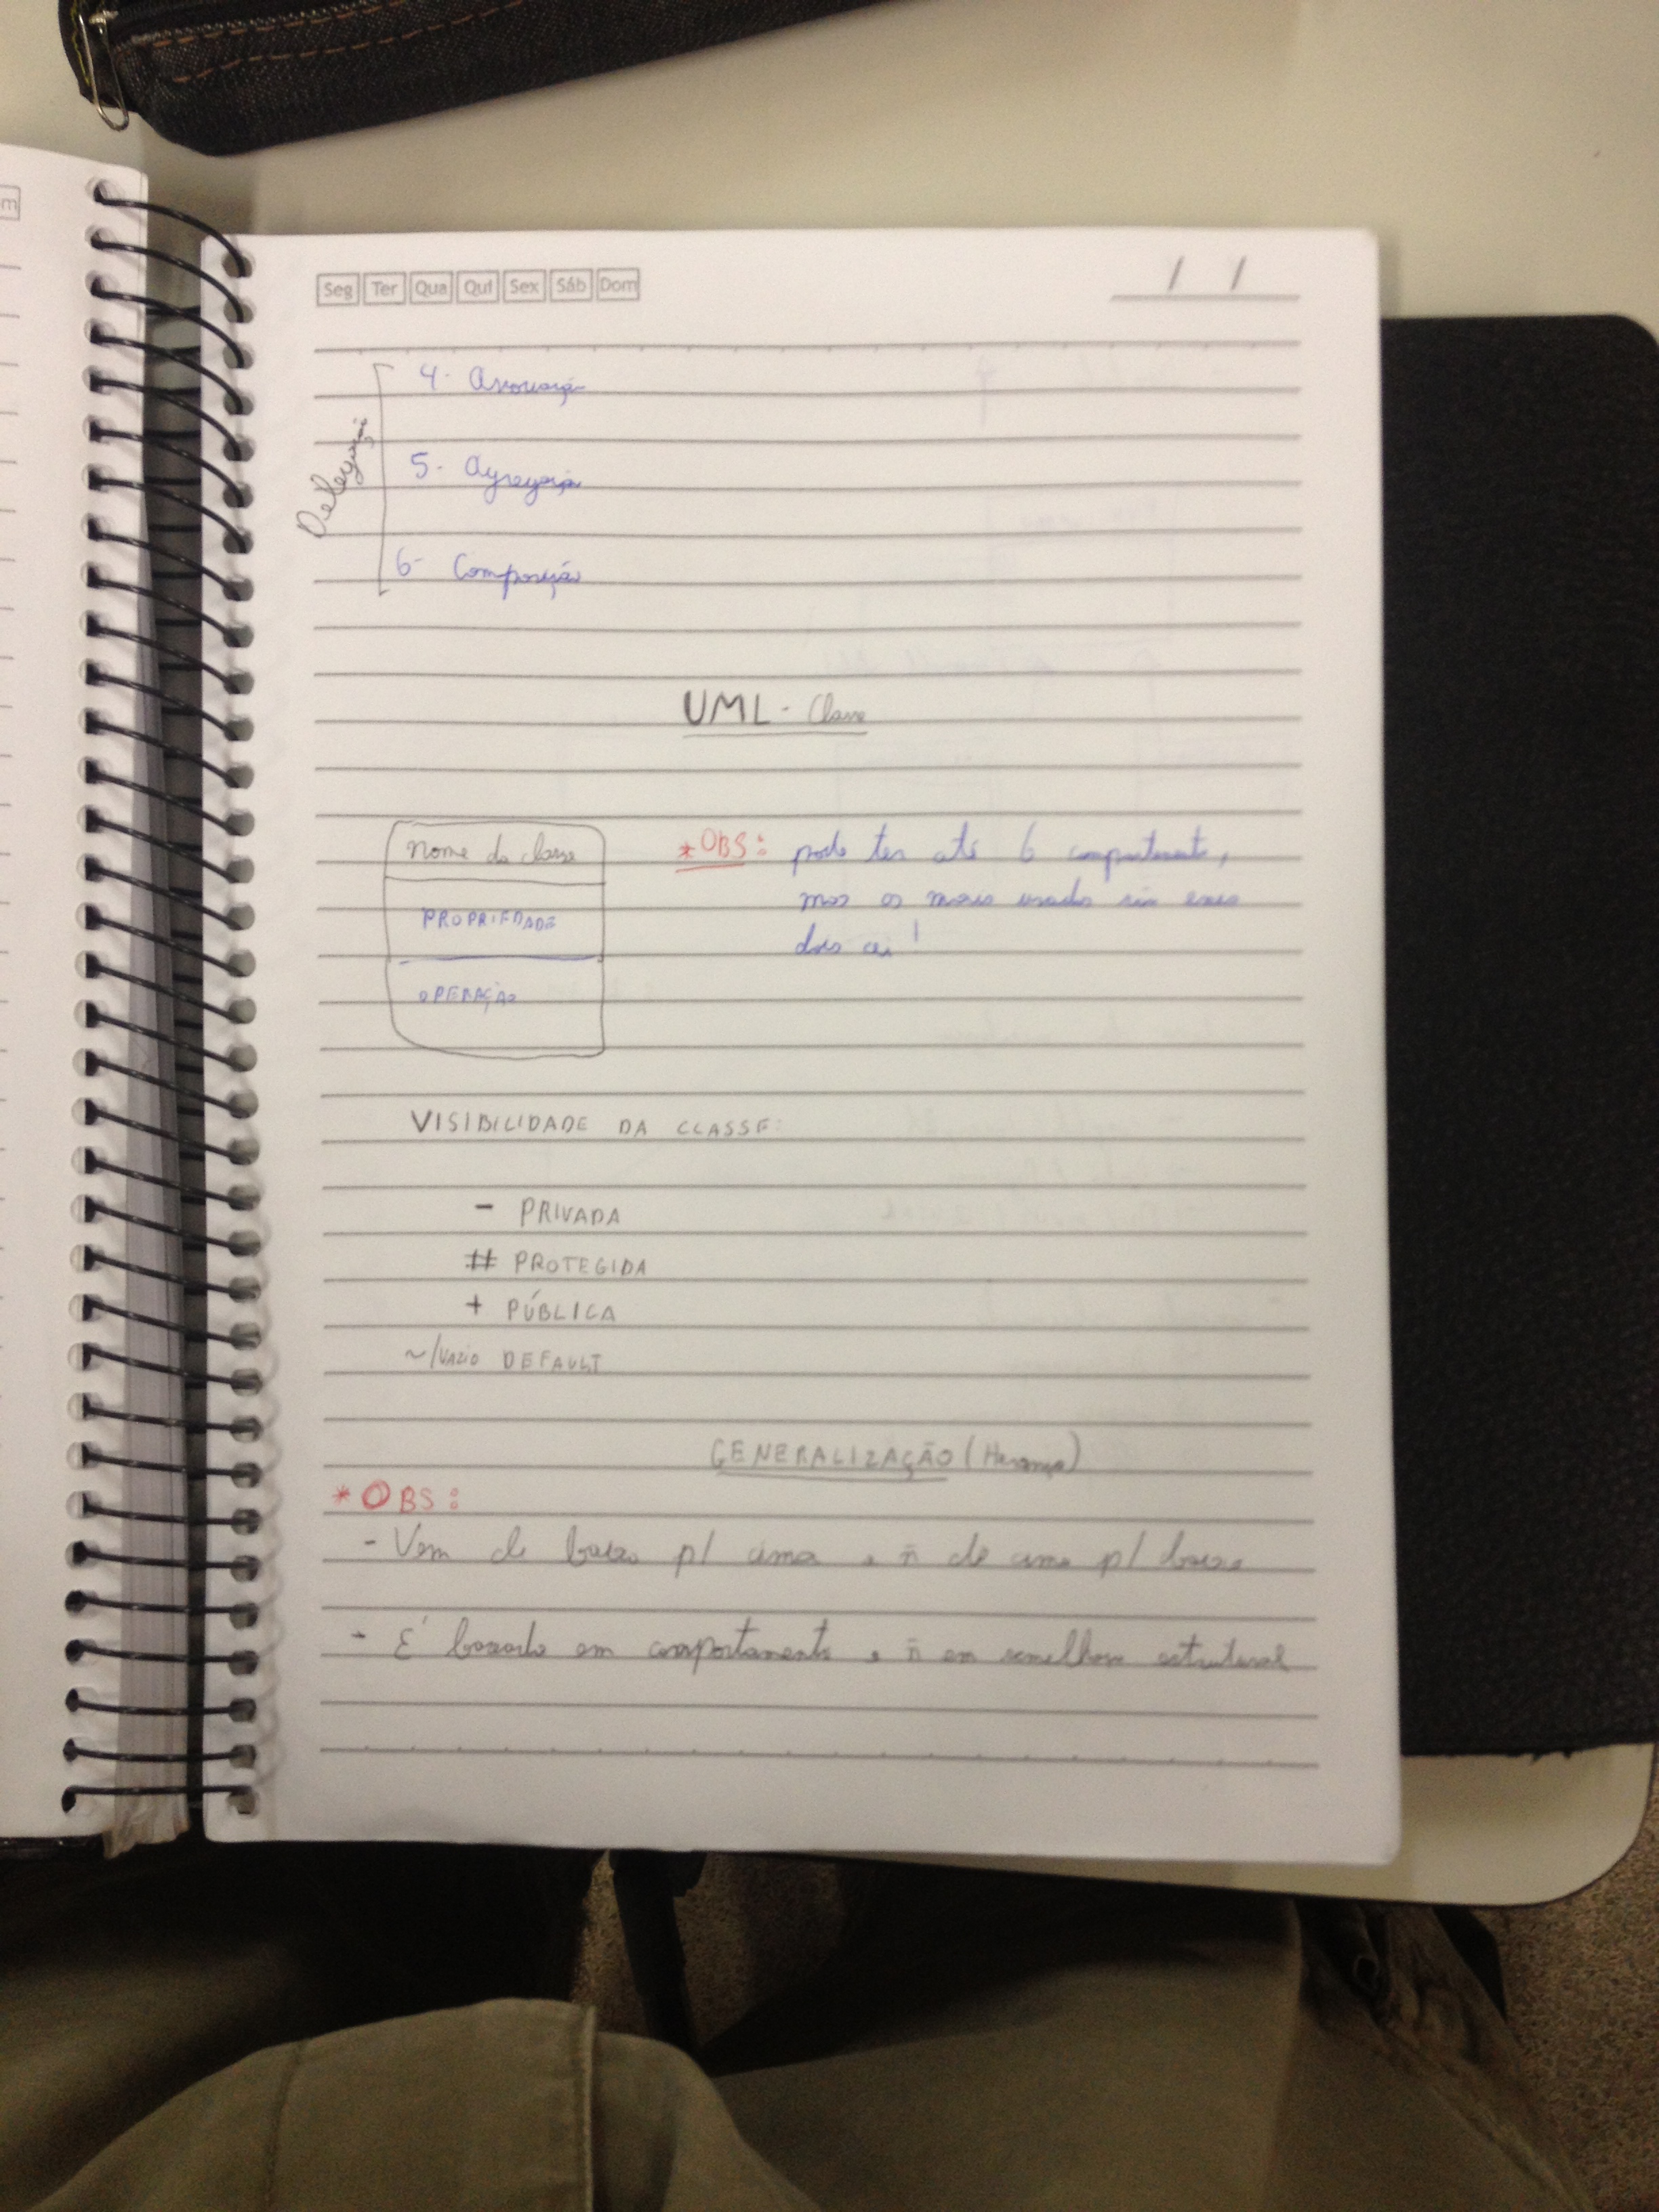 m
Seg Ter Qua Qui Sex Sáb Dom / /
Delegação
4- Associação
5- Agregação
6- Composição
UML - Classe
nome da classe
PROPRIEDADE
OPERAÇÃO
*OBS: pode ter até 6 compartimento,
mas os mais usados são esses
dois ai!
VISIBILIDADE DA CLASSE:
- PRIVADA
# PROTEGIDA
+ PÚBLICA
~/VAZIO DEFAULT
GENERALIZAÇÃO (Herança)
*OBS:
- Vem de baixo p/ cima, ñ de cima p/ baixo
- É baseado em comportamento, ñ em semelhança estrutural